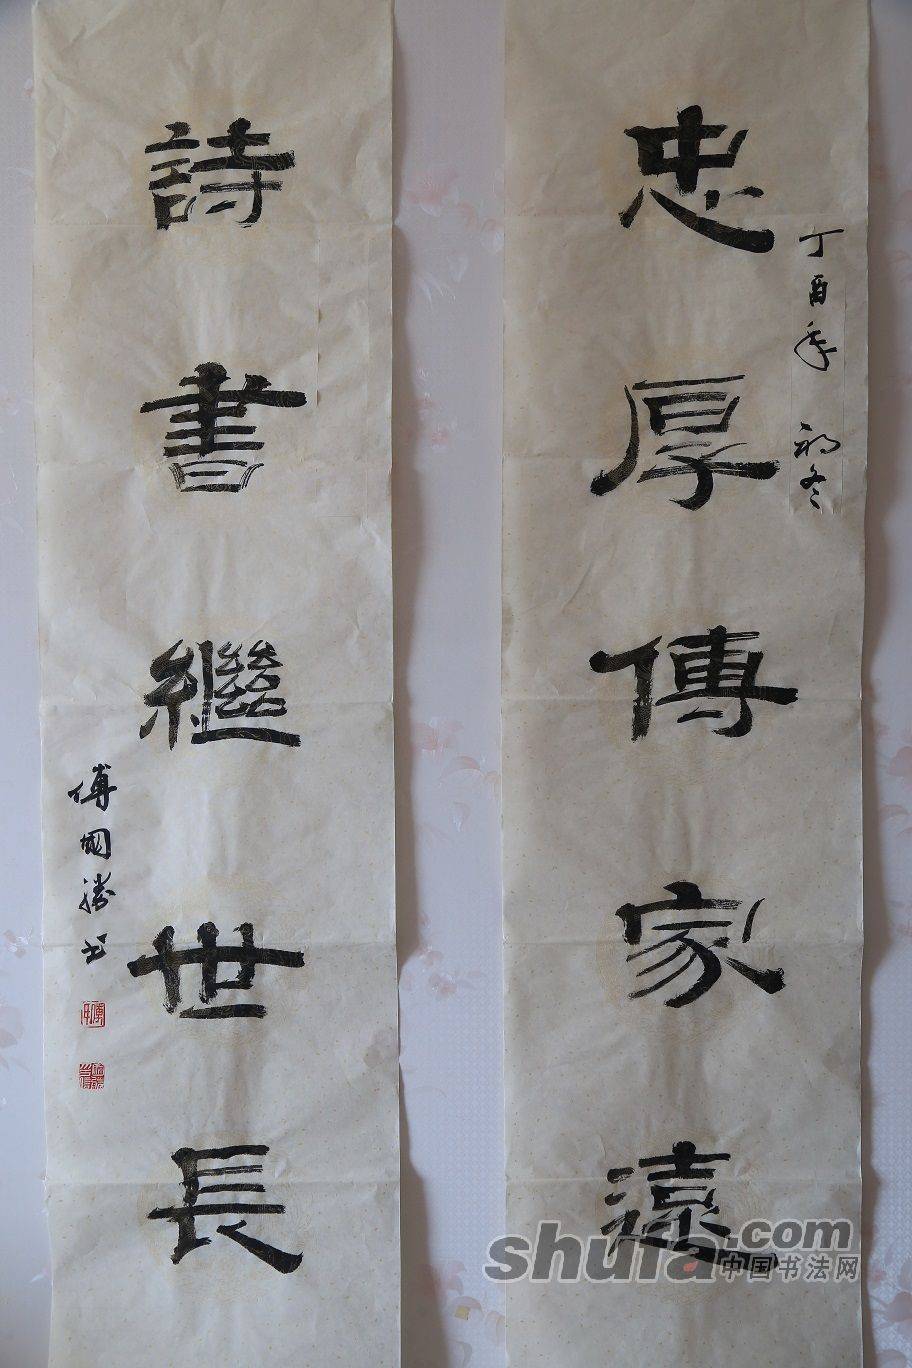 忠厚傳家遠
丁酉年 初冬
詩書繼世長
傅國勝书
shufa.com
中国书法网